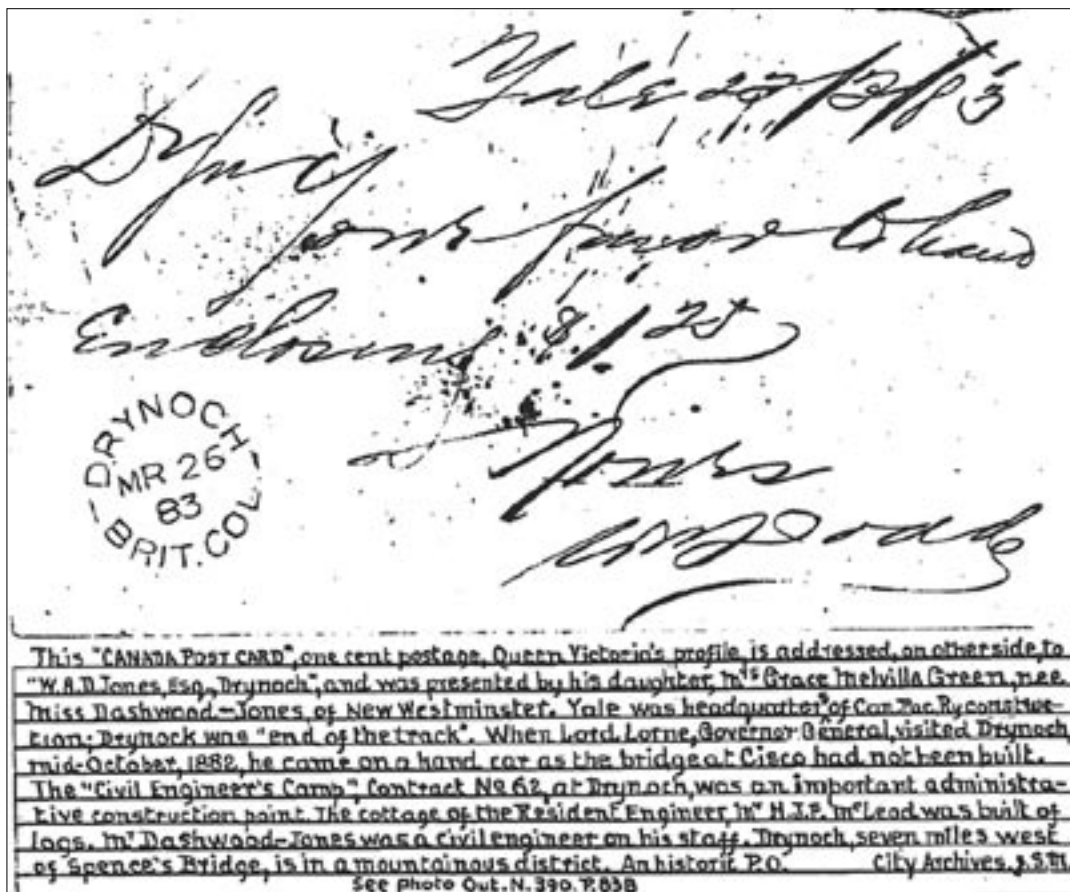 Yale 27/3/83
D Sir
Your favor to hand
Enclosing 8/25
Yours
DRYNOCH
MR 26
83
BRIT. COL
This "CANADA POST CARD", one cent postage, Queen Victoria's profile, is addressed, on other side, to
"W.A.D. Jones, Esq., Drynoch", and was presented by his daughter, Mrs Grace Melvilla Green, nee
Miss Dashwood-Jones, of New Westminster. Yale was headquarters of Can. Pac. Ry construc-
tion; Drynock was "end of the track". When Lord Lorne, Governor General, visited Drynoch
mid-October, 1882, he came on a hand car as the bridge at Cisco had not been built.
The "Civil Engineer's Camp", Contract No 62, at Drynoch, was an important administra-
tive construction point. The cottage of the Resident Engineer, Mr H.J.F. McLeod was built of
logs. Mr Dashwood-Jones was a Civil engineer on his staff. Drynoch, seven miles west
of Spence's Bridge, is in a mountainous district. An historic P.O. City Archives. J.S.M.
See photo Out. N. 390. P. 838